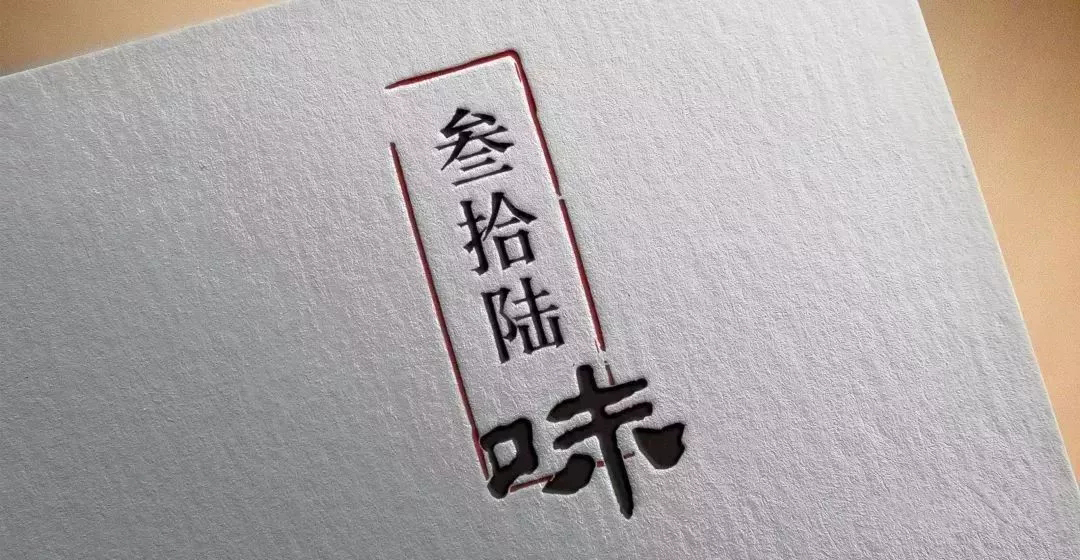 叁拾陆味